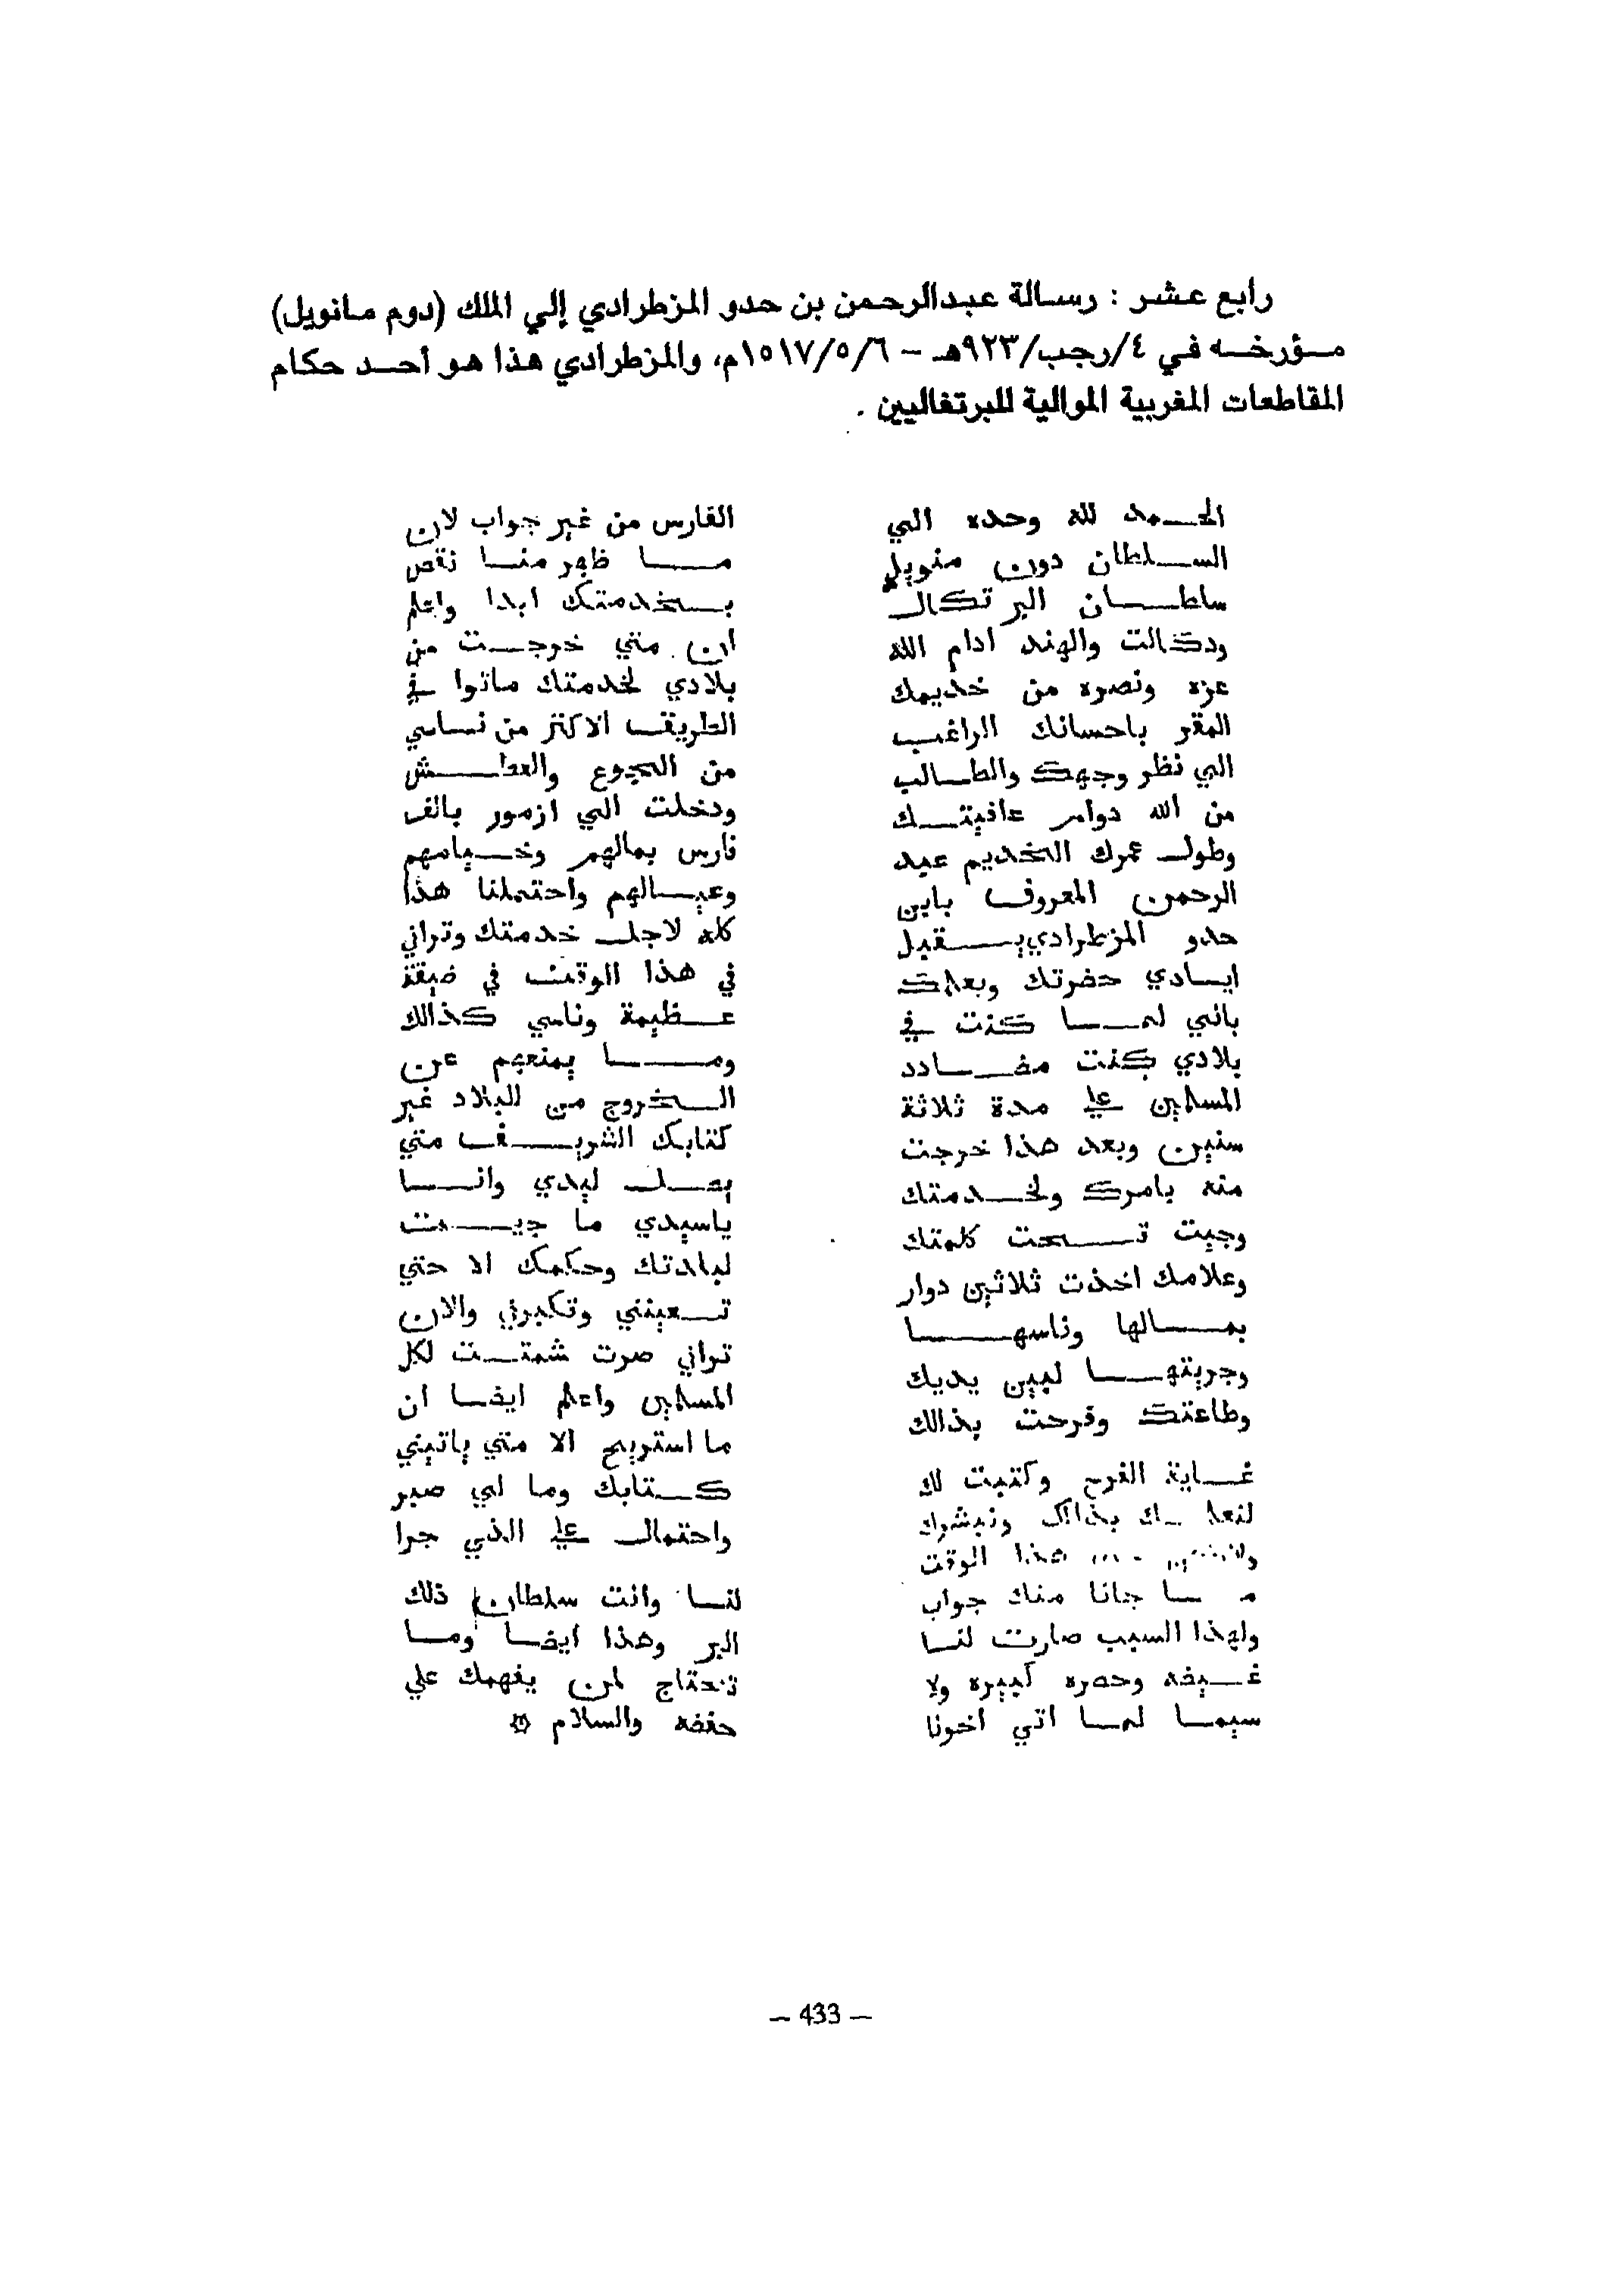 رابع عشر : رسالة عبدالرحمن بن حدو المزطرادي إلي الملك (دوم مانويل)
مؤرخه في ٤/رجب/٩٢٣هـ – ١٥١٧/٥/٦م، والمزطرادي هذا هو أحد حكام
المقاطعات المغربية الموالية للبرتغاليين .
الحمد لله وحده الي
السلطان دون منويل
سلطان البرتكال
ودكالت والهند ادام الله
عزه ونصره من خديمك
المقر باحسانك الراغب
الي نظر وجهك والطالب
من الله دوام عافيتك
وطول عمرك الخديم عبد
الرحمن المعروف بابن
حدو المزطرادي يقبل
ايادي حضرتك ويعلمك
باني لما كنت في
بلادي كنت مضادد
المسلمين علي مدة ثلاثة
سنين وبعد هذا خرجت
منه بامرك ولخدمتك
وجيت تحت كلمتك
وعلامك اخذت ثلاثين دوار
بمالها وناسها
وجريتها لبين يديك
وطاعتك وفرحت بذالك
غاية الفرح وكتبت لك
لنعلمك بذالك ونبشرك
هذا الوقت
ما جانا منك جواب
ولهذا السبب صارت لنا
غيضه وحصره كبيره ولا
سيما لما اتي اخونا
الفارس من غير جواب لان
ما ظهر منا نقص
بخدمتك ابدا واعلم
ان متي خرجت من
بلادي لخدمتك ماتوا في
الطريق الاكثر من نساسي
من الجوع والعطش
ودخلت الي ازمور بالف
فارس بمالهم وخيامهم
وعيالهم واحتملنا هذا
كله لاجل خدمتك وتراني
في هذا الوقت في ضيقة
عظيمة وناسي كذالك
وما يمنعهم عن
الخروج من البلاد غير
كتابك الشريف متي
يصل ليدي وانا
ياسيدي ما جيت
لبلادتك وحكمك الا حتي
تعينني وتكبرني والان
تراني صرت شمتت لكل
المسلمين واعلم ايضا ان
ما استريح الا متي ياتيني
كتابك وما لي صبر
واحتمال علي الذي جرا
لنا وانت سلطان ذلك
البر وهذا ايضا وما
تحتاج لمن يفهمك علي
حقفه والسلام
– 433 –